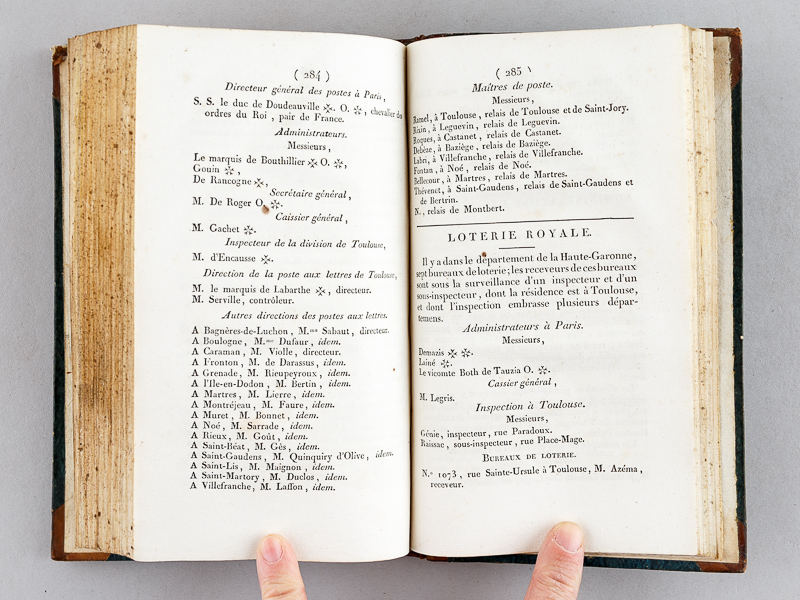 ( 284 )
Directeur général des postes à Paris,
S. S. le duc de Doudeauville ✠. O. ✠, chevalier des
ordres du Roi, pair de France.
Administrateurs.
Messieurs,
Le marquis de Bouthillier ✠ O. ✠,
Gouin ✠,
De Rancogne ✠,
Secrétaire général,
M. De Roger O. ✠.
Caissier général,
M. Gachet ✠.
Inspecteur de la division de Toulouse,
M. d'Encausse ✠.
Direction de la poste aux lettres de Toulouse,
M. le marquis de Labarthe ✠, directeur.
M. Serville, contrôleur.
Autres directions des postes aux lettres.
A Bagnères-de-Luchon, M.me Sabaut, directeur.
A Boulogne, M.me Dufaur, idem.
A Caraman, M. Violle, directeur.
A Fronton, M. de Darassus, idem.
A Grenade, M. Rieupeyroux, idem.
A l'Ile-en-Dodon, M. Bertin, idem.
A Martres, M. Lierre, idem.
A Montréjeau, M. Faure, idem.
A Muret, M. Bonnet, idem.
A Noé, M. Sarrade, idem.
A Rieux, M. Goût, idem.
A Saint-Béat, M. Gès, idem.
A Saint-Gaudens, M. Quinquiry d'Olive, idem.
A Saint-Lis, M. Maignon, idem.
A Saint-Martory, M. Duclos, idem.
A Villefranche, M. Laffon, idem.
( 285 )
Maîtres de poste.
Messieurs,
Ramel, à Toulouse, relais de Toulouse et de Saint-Jory.
Rixin, à Leguevin, relais de Leguevin.
Roques, à Castanet, relais de Castanet.
Debèze, à Baziège, relais de Baziège.
Labri, à Villefranche, relais de Villefranche.
Fontan, à Noé, relais de Noé.
Bellecour, à Martres, relais de Martres.
Thévenet, à Saint-Gaudens, relais de Saint-Gaudens et
de Bertrin.
N., relais de Montbert.
LOTERIE ROYALE.
Il y a dans le département de la Haute-Garonne,
sept bureaux de loterie; les receveurs de ces bureaux
sont sous la surveillance d'un inspecteur et d'un
sous-inspecteur, dont la résidence est à Toulouse,
et dont l'inspection embrasse plusieurs dépar-
temens.
Administrateurs à Paris.
Messieurs,
Demazis ✠ ✠.
Lainé ✠.
Le vicomte Both de Tauzia O. ✠.
Cassier général,
M. Legris.
Inspection à Toulouse.
Messieurs,
Génie, inspecteur, rue Paradoux.
Raissac, sous-inspecteur, rue Place-Mage.
BUREAUX DE LOTERIE.
N.º 1073, rue Sainte-Ursule à Toulouse, M. Azéma,
receveur.